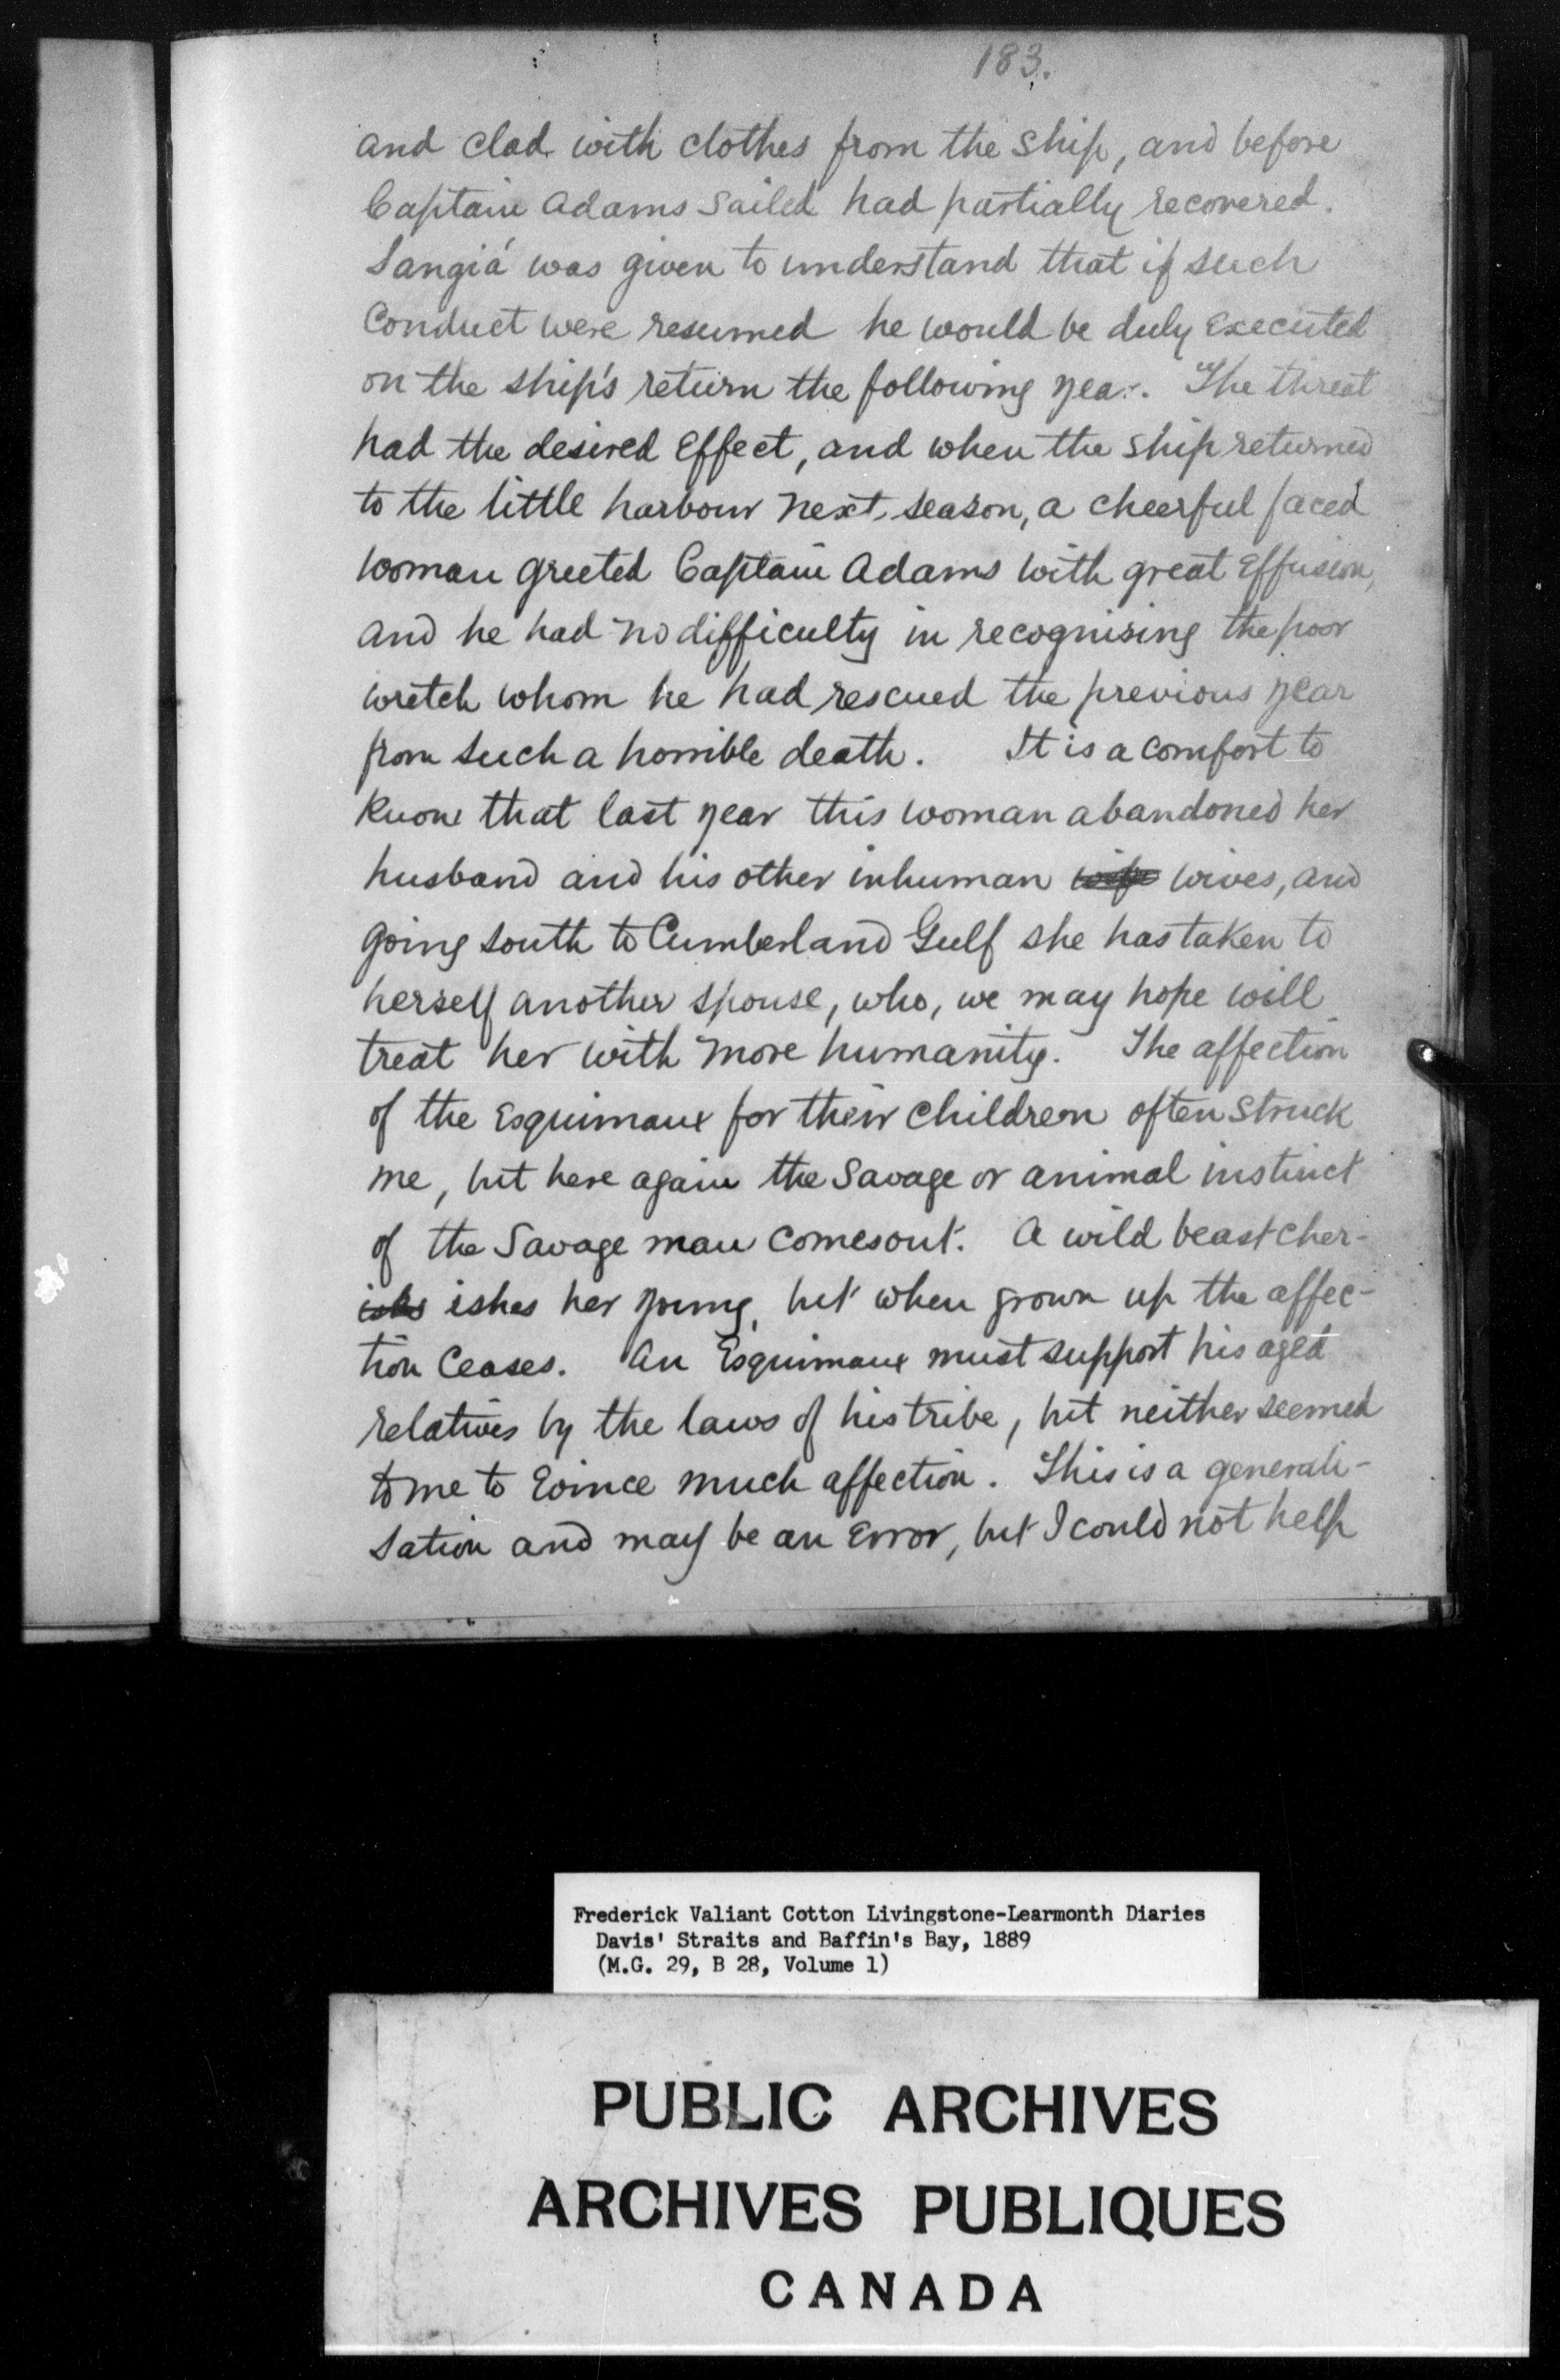 183.
and clad with clothes from the ship, and before
Captain Adams sailed had partially recovered.
Sangiá was given to understand that if such
conduct were resumed he would be duly executed
on the ship's return the following year. The threat
had the desired effect, and when the ship returned
to the little harbour next season, a cheerful faced
woman greeted Captain Adams with great effusion,
and he had no difficulty in recognising the poor
wretch whom he had rescued the previous year
from such a horrible death. It is a comfort to
know that last year this woman abandoned her
husband and his other inhuman wife wives, and
going south to Cumberland Gulf she has taken to
herself another spouse, who, we may hope will
treat her with more humanity. The affection
of the Esquimaux for their children often struck
me, but here again the savage or animal instinct
of the Savage man comes out. A wild beast cher-
ishes her young, but when grown up the affec-
tion ceases. An Esquimaux must support his aged
relatives by the laws of his tribe, but neither seemed
to me to evince much affection. This is a generali-
sation and may be an error, but I could not help
Frederick Valiant Cotton Livingstone-Learmonth Diaries
Davis' Straits and Baffin's Bay, 1889
(M.G. 29, B 28, Volume 1)
PUBLIC ARCHIVES
ARCHIVES PUBLIQUES
CANADA